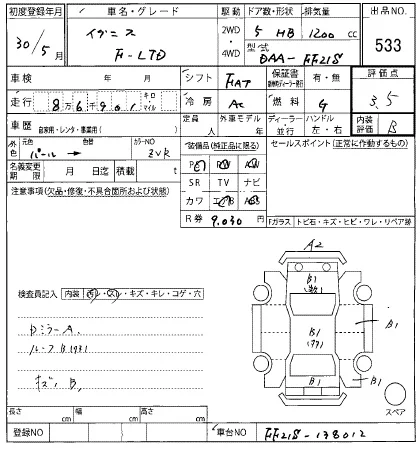 初度登録年月 車名・グレード 駆動 ドア数・形状 排気量 出品NO.
30/5月 イグニス 2WD・4WD 5 HB 1200cc 533
F-LTD 型式 DAA-FF21S
車検 年 月 シフト FAT 保証書 有・無 評価点
走行 8万6千901 キロ・マイル 冷房 AC 燃料 G 3.5
車歴 自家用・レンタ・事業用( ) 定員 人 外車モデル 年 ディーラー・並行 ハンドル 左・右 内装評価 B
外色 元色 パール → 色替 カラーNO ZVR 装備品(純正品に限る) セールスポイント(正常に作動するもの)
名義変更期限 月 日迄 積載 t PS PW ABS
注意事項(欠品・修復・不具合箇所および状態) SR TV ナビ
カワ エアB AW
R券 9,030 円 Fガラス トビ石・キズ・ヒビ・ワレ・リペア跡
A2
検査員記入 内装 汚レ・スレ・キズ・キレ・コゲ・穴
B1
B1
B1
B1
B1
スペア
長さ cm 幅 cm 高さ cm
登録NO 車台NO FF21S-138012